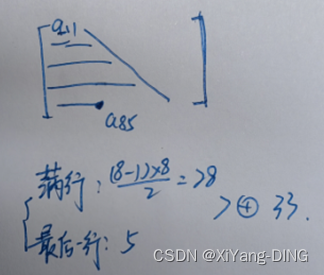 a11
a85
满行: (8-1)×8/2 = 28
> ⊕ 33.
最后一行: 5
CSDN @XiYang-DING